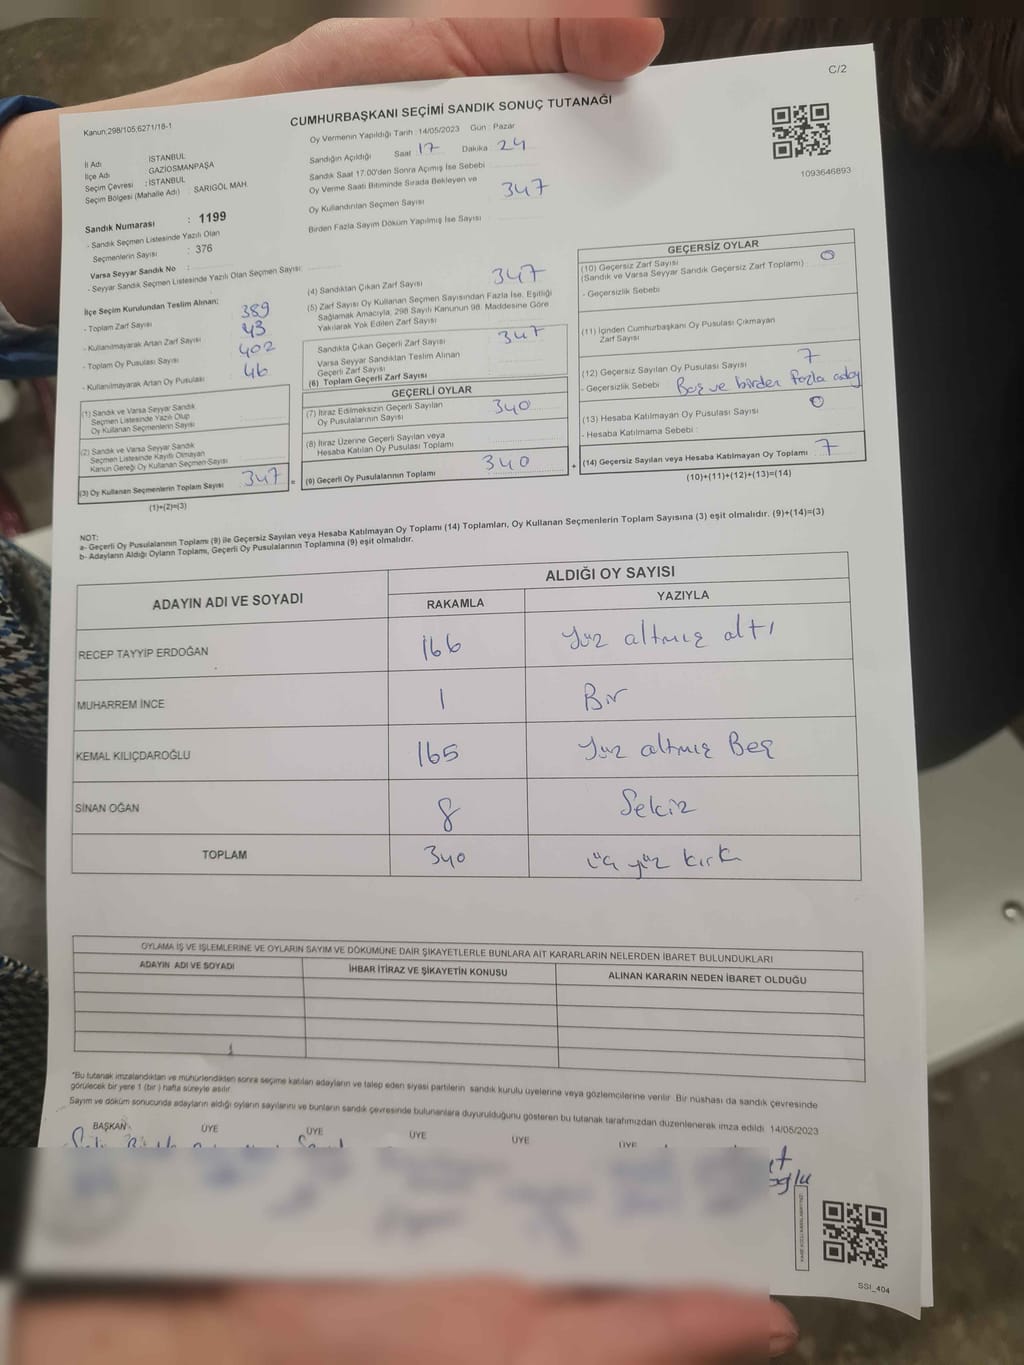 C/2
Kanun:298/105;6271/18-1
CUMHURBAŞKANI SEÇİMİ SANDIK SONUÇ TUTANAĞI
Oy Vermenin Yapıldığı Tarih : 14/05/2023 Gün : Pazar
İl Adı İSTANBUL
İlçe Adı GAZİOSMANPAŞA
Seçim Çevresi : İSTANBUL
Seçim Bölgesi (Mahalle Adı) : SARIGÖL MAH.
Sandığın Açıldığı Saat 17 Dakika 24
Sandık Saat 17.00'den Sonra Açımış İse Sebebi
Oy Verme Saati Bitiminde Sırada Bekleyen ve
Oy Kullandırılan Seçmen Sayısı 347
Birden Fazla Sayım Döküm Yapılmış İse Sayısı
1093646893
Sandık Numarası : 1199
- Sandık Seçmen Listesinde Yazılı Olan
Seçmenlerin Sayısı : 376
Varsa Seyyar Sandık No :
- Seyyar Sandık Seçmen Listesinde Yazılı Olan Seçmen Sayısı
İlçe Seçim Kurulundan Teslim Alınan;
- Toplam Zarf Sayısı 389
- Kullanılmayarak Artan Zarf Sayısı 43
- Toplam Oy Pusulası Sayısı 402
- Kullanılmayarak Artan Oy Pusulası 46
(1) Sandık ve Varsa Seyyar Sandık
Seçmen Listesinde Yazılı Olup
Oy Kullanan Seçmenlerin Sayısı
(2) Sandık ve Varsa Seyyar Sandık
Seçmen Listesinde Kayıtlı Olmayan
Kanun Gereği Oy Kullanan Seçmen Sayısı
(3) Oy Kullanan Seçmenlerin Toplam Sayısı 347
(1)+(2)=(3)
(4) Sandıktan Çıkan Zarf Sayısı 347
(5) Zarf Sayısı Oy Kullanan Seçmen Sayısından Fazla İse, Eşitliği
Sağlamak Amacıyla, 298 Sayılı Kanunun 98. Maddesine Göre
Yakılarak Yok Edilen Zarf Sayısı
Sandıkta Çıkan Geçerli Zarf Sayısı 347
Varsa Seyyar Sandıktan Teslim Alınan
Geçerli Zarf Sayısı
(6) Toplam Geçerli Zarf Sayısı
GEÇERLİ OYLAR
(7) İtiraz Edilmeksizin Geçerli Sayılan
Oy Pusulalarının Sayısı 340
(8) İtiraz Üzerine Geçerli Sayılan veya
Hesaba Katılan Oy Pusulası Toplamı
(9) Geçerli Oy Pusulalarının Toplamı 340
GEÇERSİZ OYLAR
(10) Geçersiz Zarf Sayısı 0
(Sandık ve Varsa Seyyar Sandık Geçersiz Zarf Toplamı) :
- Geçersizlik Sebebi
(11) İçinden Cumhurbaşkanı Oy Pusulası Çıkmayan
Zarf Sayısı
(12) Geçersiz Sayılan Oy Pusulası Sayısı 7
- Geçersizlik Sebebi Boş ve birden fazla aday
(13) Hesaba Katılmayan Oy Pusulası Sayısı 0
- Hesaba Katılmama Sebebi :
(14) Geçersiz Sayılan veya Hesaba Katılmayan Oy Toplamı 7
(10)+(11)+(12)+(13)=(14)
NOT:
a- Geçerli Oy Pusulalarının Toplamı (9) ile Geçersiz Sayılan veya Hesaba Katılmayan Oy Toplamı (14) Toplamları, Oy Kullanan Seçmenlerin Toplam Sayısına (3) eşit olmalıdır. (9)+(14)=(3)
b- Adayların Aldığı Oyların Toplamı, Geçerli Oy Pusulalarının Toplamına (9) eşit olmalıdır.
ADAYIN ADI VE SOYADI
ALDIĞI OY SAYISI
RAKAMLA YAZIYLA
RECEP TAYYIP ERDOĞAN 166 Yüz altmış altı
MUHARREM İNCE 1 Bir
KEMAL KILIÇDAROĞLU 165 Yüz altmış Beş
SİNAN OĞAN 8 Sekiz
TOPLAM 340 üç yüz kırk
OYLAMA İŞ VE İŞLEMLERİNE VE OYLARIN SAYIM VE DÖKÜMÜNE DAİR ŞİKAYETLERLE BUNLARA AİT KARARLARIN NELERDEN İBARET BULUNDUKLARI
ADAYIN ADI VE SOYADI İHBAR İTİRAZ VE ŞİKAYETİN KONUSU ALINAN KARARIN NEDEN İBARET OLDUĞU
*Bu tutanak imzalandıktan ve mühürlendikten sonra seçime katılan adayların ve talep eden siyasi partilerin sandık kurulu üyelerine veya gözlemcilerine verilir. Bir nüshası da sandık çevresinde
görülecek bir yere 1 (bir) hafta süreyle asılır.
Sayım ve döküm sonucunda adayların aldığı oyların sayılarını ve bunların sandık çevresinde bulunanlara duyurulduğunu gösteren bu tutanak tarafımızdan düzenlenerek imza edildi. 14/05/2023
BAŞKAN ÜYE ÜYE ÜYE ÜYE ÜYE
SSI_404